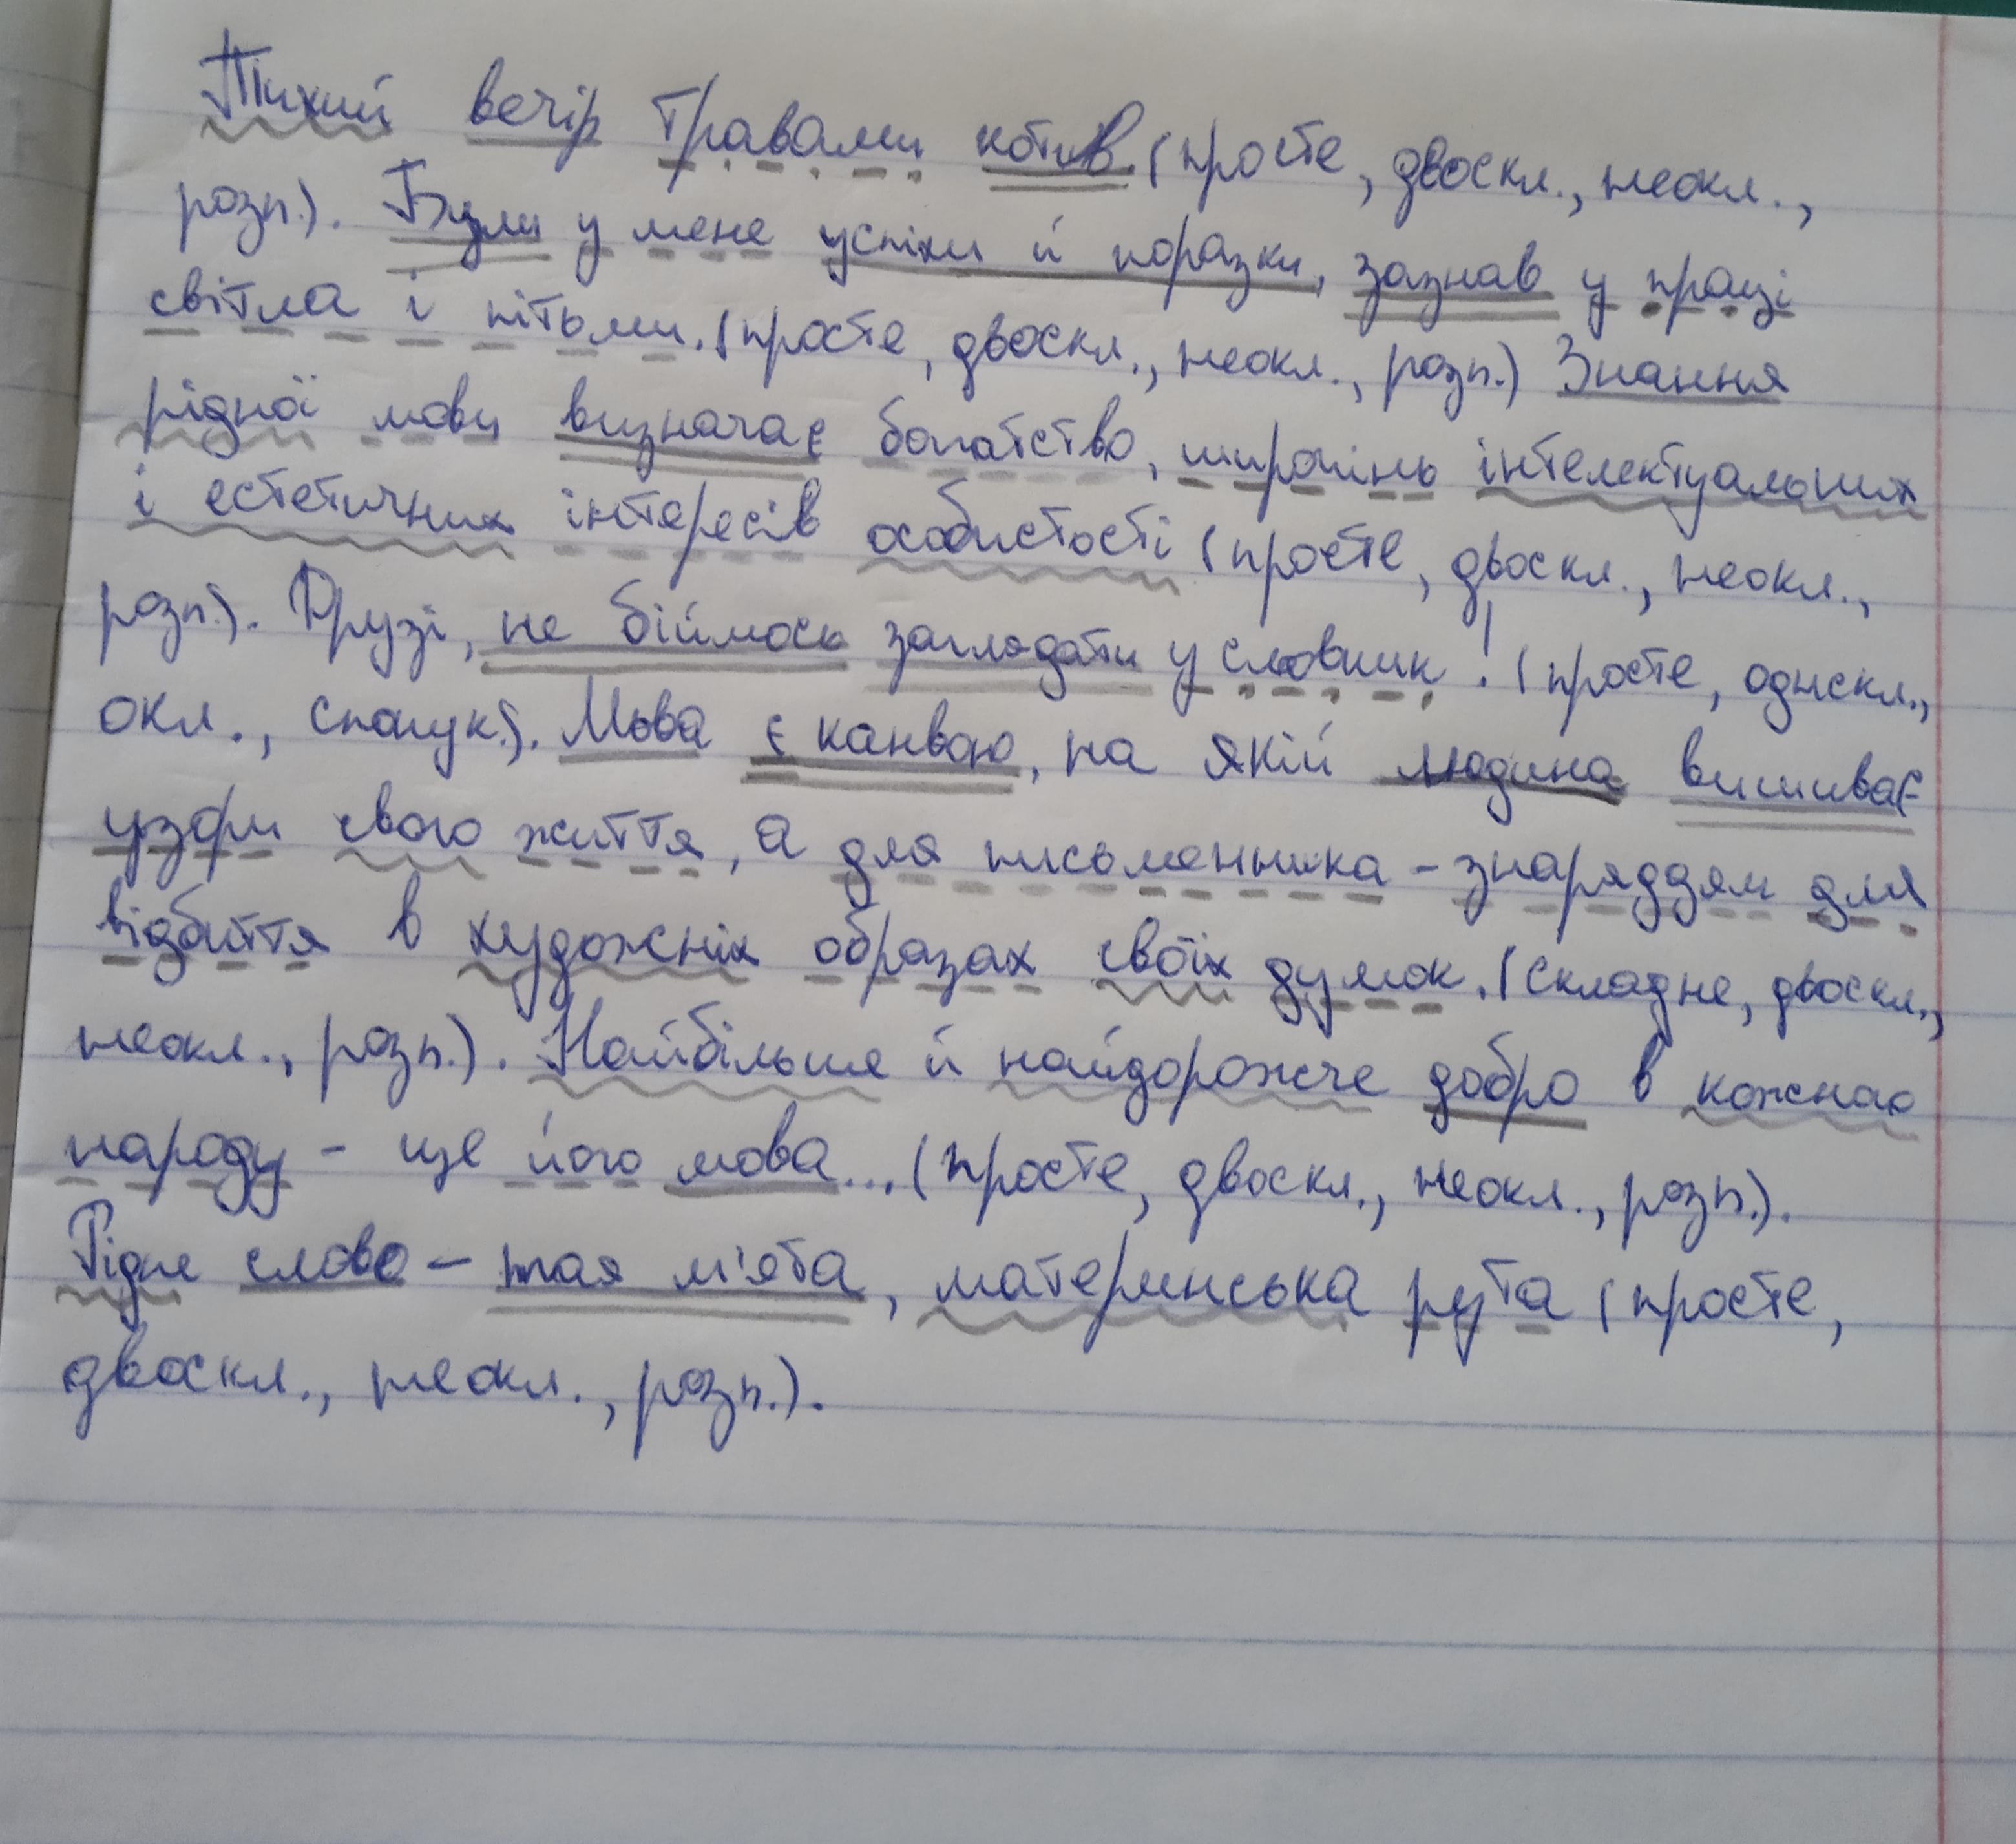 Тихий вечір травами котив. (просте, двоскл., неокл.,
розп.). Були у мене успіхи й поразки, зазнав у праці
світла і пітьми. (просте, двоскл., неокл., розп.) Знання
рідної мови визначає богатство, широчінь інтелектуальних
і естетичних інтересів особистості (просте, двоскл., неокл.,
розп.). Друзі, не біймось заглядати у словник! (просте, однскл.,
окл., спонук.). Мова є канвою, на якій людина вишиває
узори свого життя, а для письменника – знаряддям для
відбиття в художніх образах своїх думок. (складне, двоскл.,
неокл., розп.). Найбільше й найдорожче добро в кожного
народу – це його мова... (просте, двоскл., неокл., розп.).
Рідне слово – тая м'ята, материнська рута (просте,
двоскл., неокл., розп.).